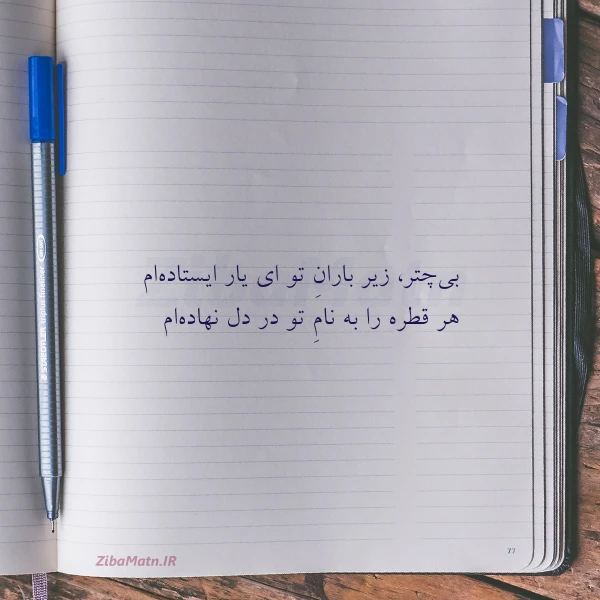 بی‌چتر، زیر بارانِ تو ای یار ایستاده‌ام
هر قطره را به نامِ تو در دل نهاده‌ام
ZibaMatn.IR